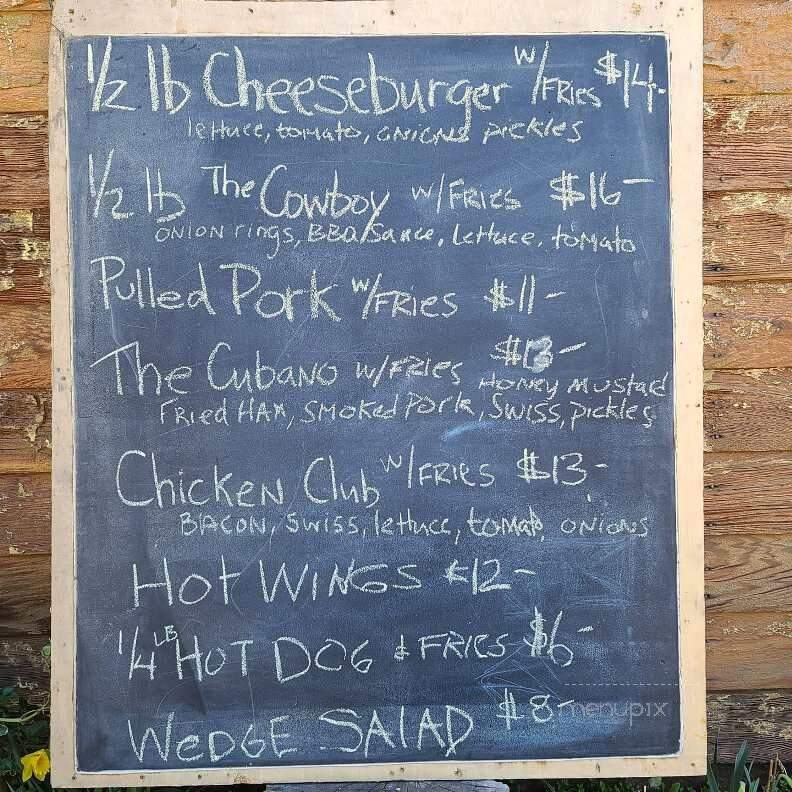 1/2 lb Cheeseburger w/FRIES $14-
lettuce, tomato, onions pickles
1/2 lb The Cowboy w/FRIES $16-
ONION rings, BBQ Sauce, Lettuce, tomato
Pulled Pork w/FRIES $11-
The Cubano w/FRIES $13-
HONEY MUSTARD
FRIED HAM, SMOKED PORK, SWISS, pickles
Chicken Club w/FRIES $13-
BACON, SWISS, lettuce, tomato, ONIONS
Hot WINGS $12-
1/4 LB HOT DOG & FRIES $6-
WEDGE SALAD $8-
menupix